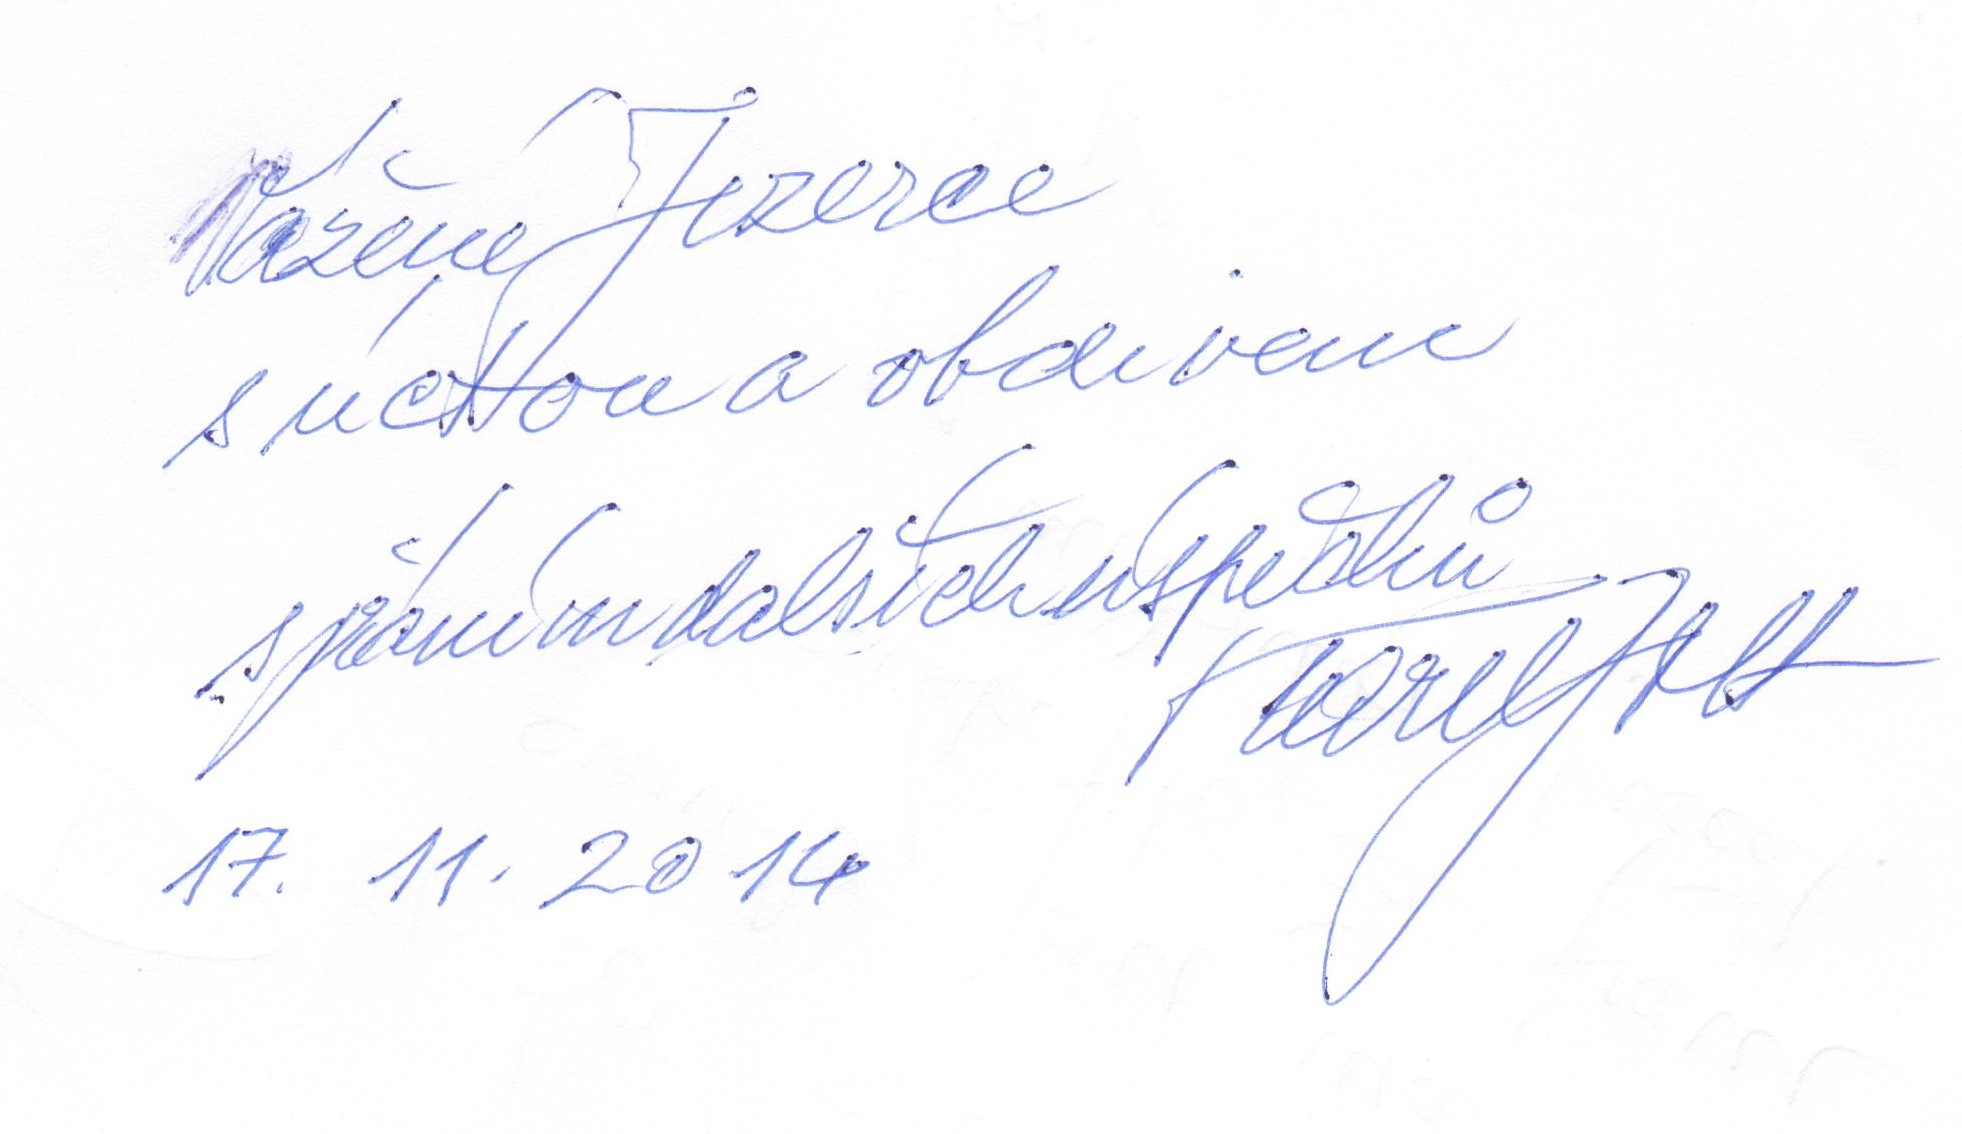 Vážené Jizerce
s úctou a obdivem
s přáním dalších úspěchů
Karel Gott
17. 11. 2014